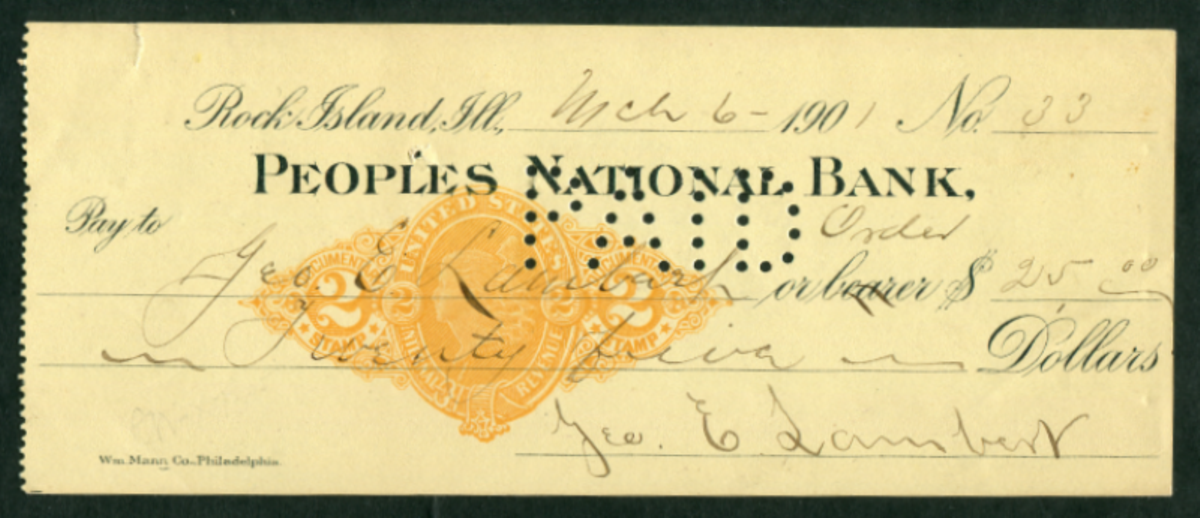 Rock Island, Ill., Mch 6 - 1901 No. 33
PEOPLES NATIONAL BANK,
PAID
Pay to Order
Geo. E Lambert or bearer $ 25.00
UNITED STATES
INTERNAL REVENUE
DOCUMENTARY 2 STAMP
2 2
DOCUMENTARY 2 STAMP
Twenty five Dollars
Geo. E Lambert
Wm. Mann Co., Philadelphia.